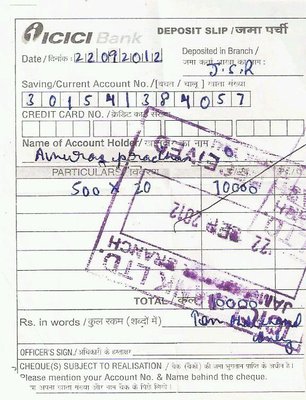 ICICI Bank DEPOSIT SLIP / जमा पर्ची
Date / दिनांक : 22092012 Deposited in Branch /
जमा
J.S.R
Saving/Current Account No. / [बचत / चालू] खाता संख्या
301541384057
CREDIT CARD NO. / क्रेडिट कार्ड संख्या
Name of Account Holder / खाताधारक का नाम
Anurag pradhan
PARTICULARS / विवरण
500 x 20 10000
22 SEP 2012
BANK LTD.
BRANCH
TOTAL / कुल 10000
Rs. in words / कुल रकम (शब्दों में) Ten thousand
only
OFFICER'S SIGN. / अधिकारी के हस्ताक्षर
CHEQUE(S) SUBJECT TO REALISATION / चेक (चेकों) की जमा भुगतान प्राप्ति के अधीन है।
Please mention your Account No. & Name behind the cheque.
अपना खाता संख्या और नाम चेक के पिछे लिखें।